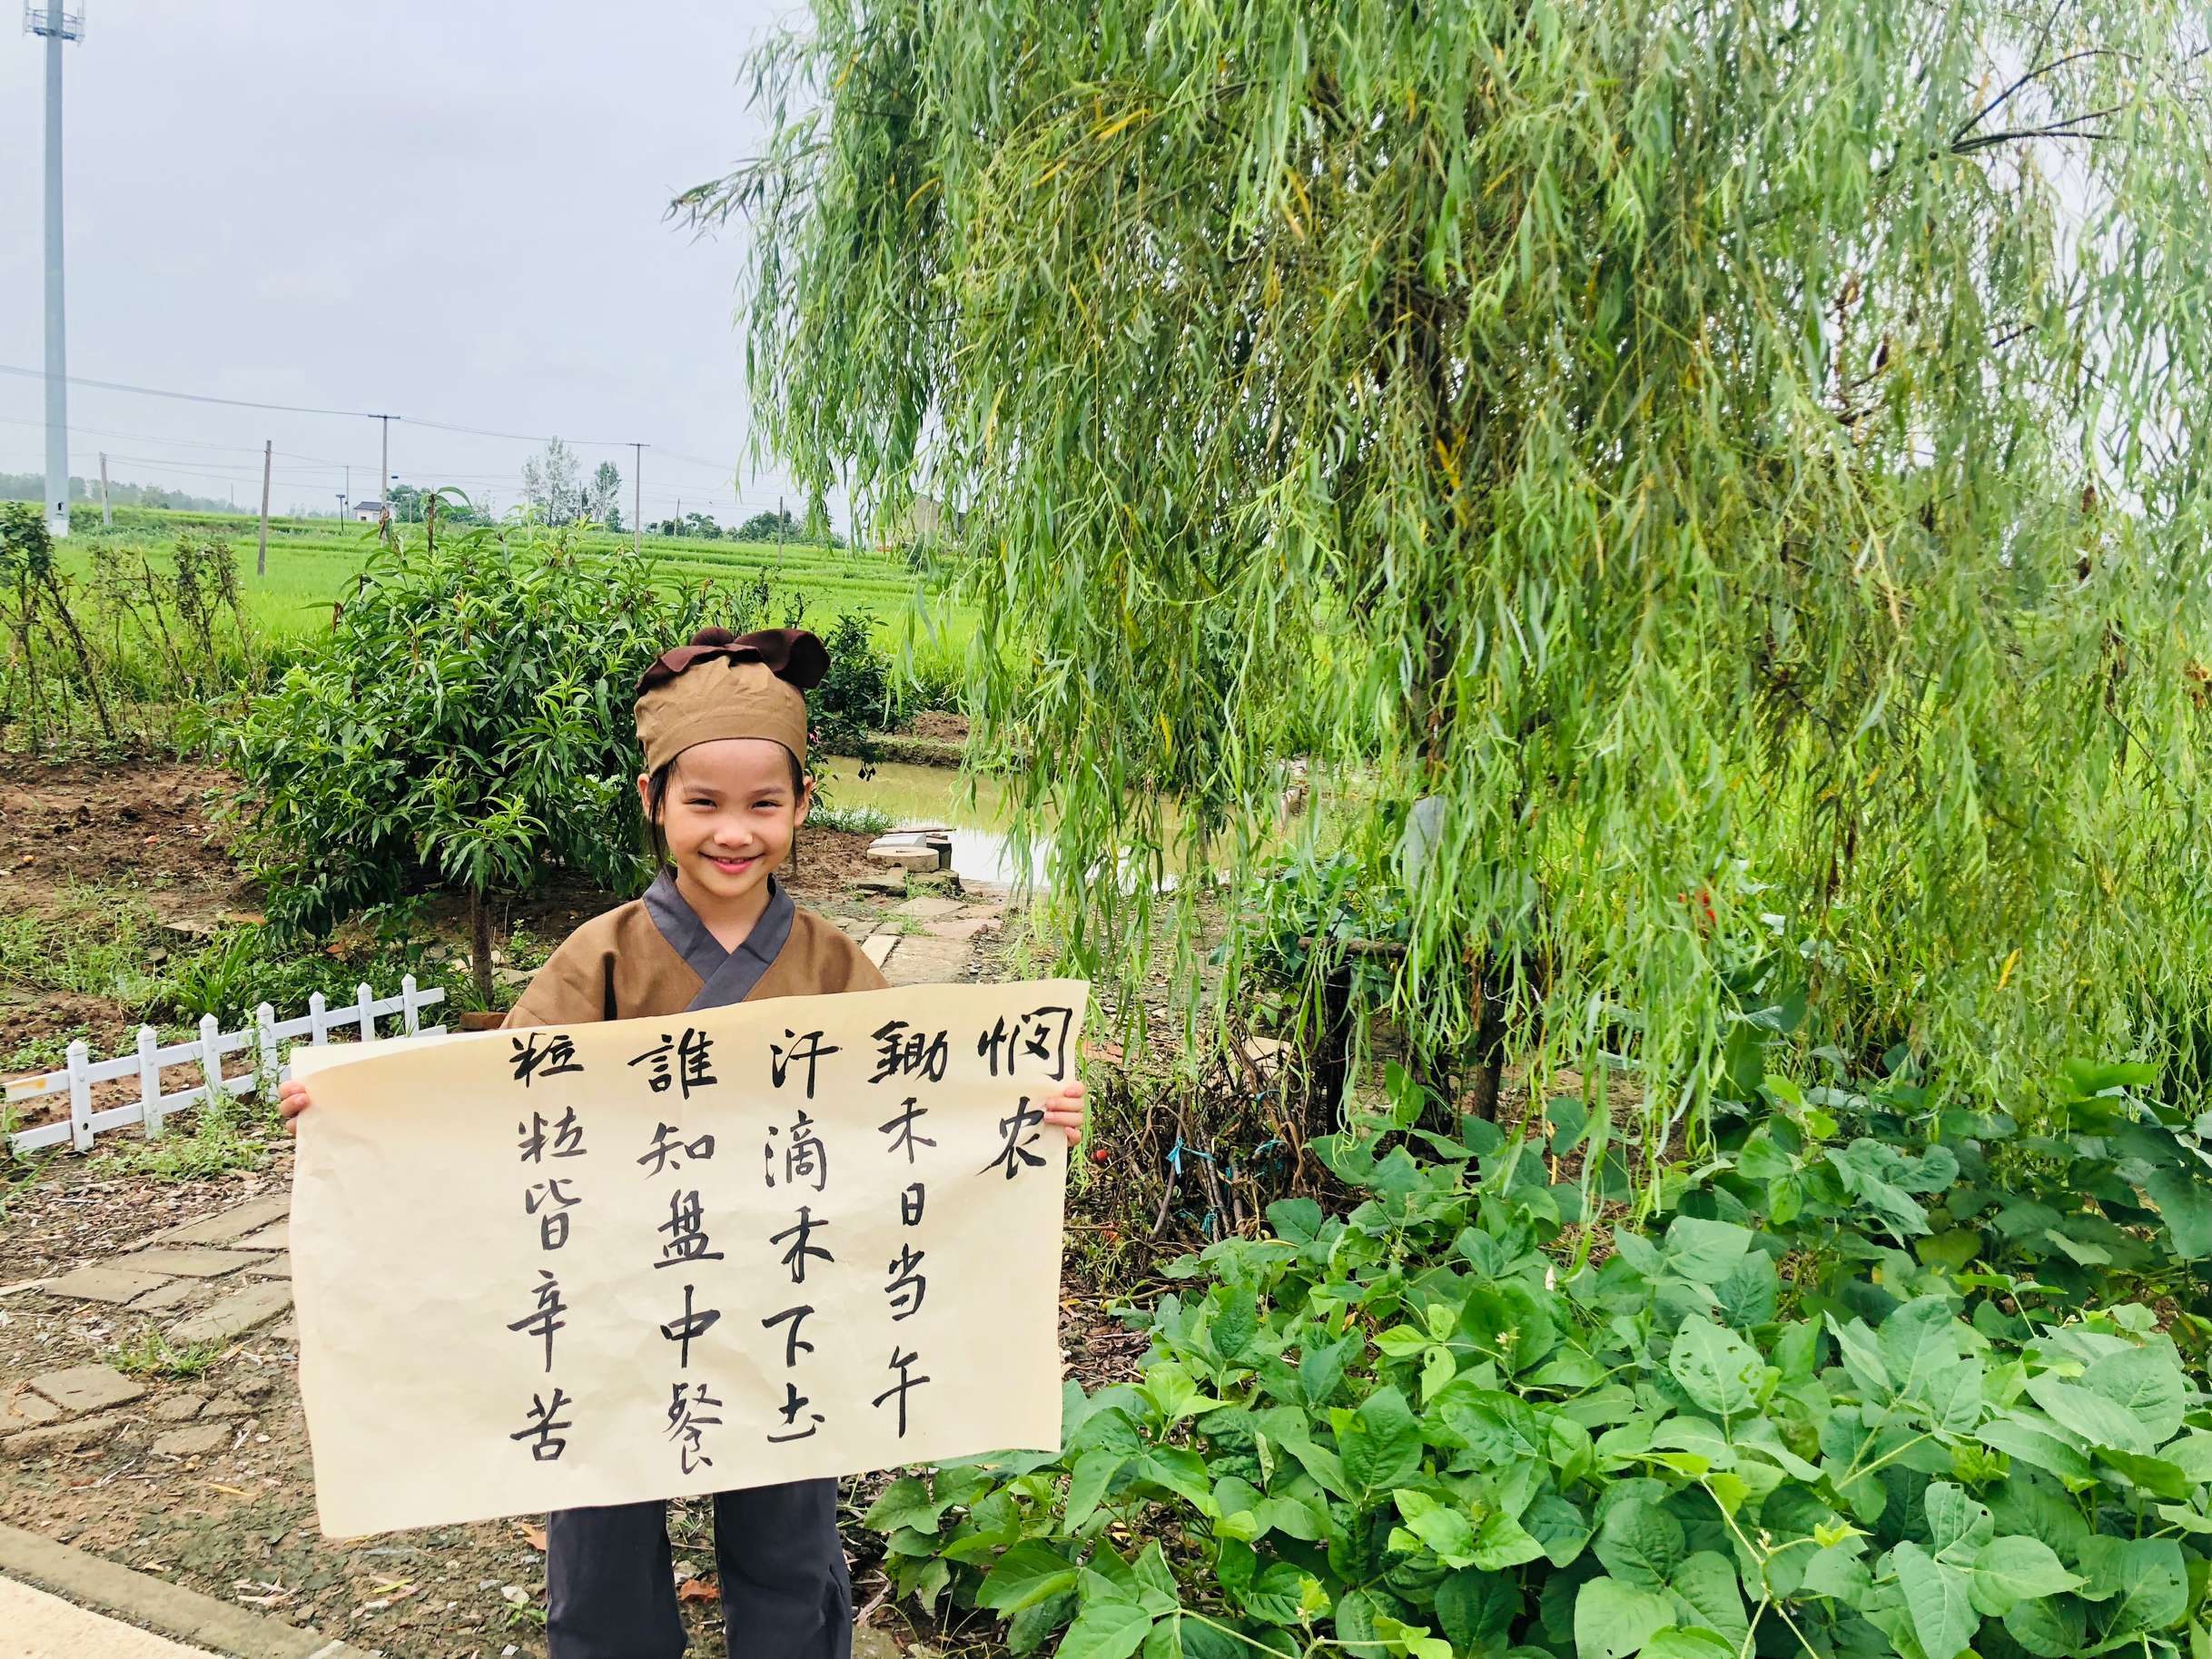 悯农
鋤禾日当午
汗滴禾下土
誰知盤中餐
粒粒皆辛苦